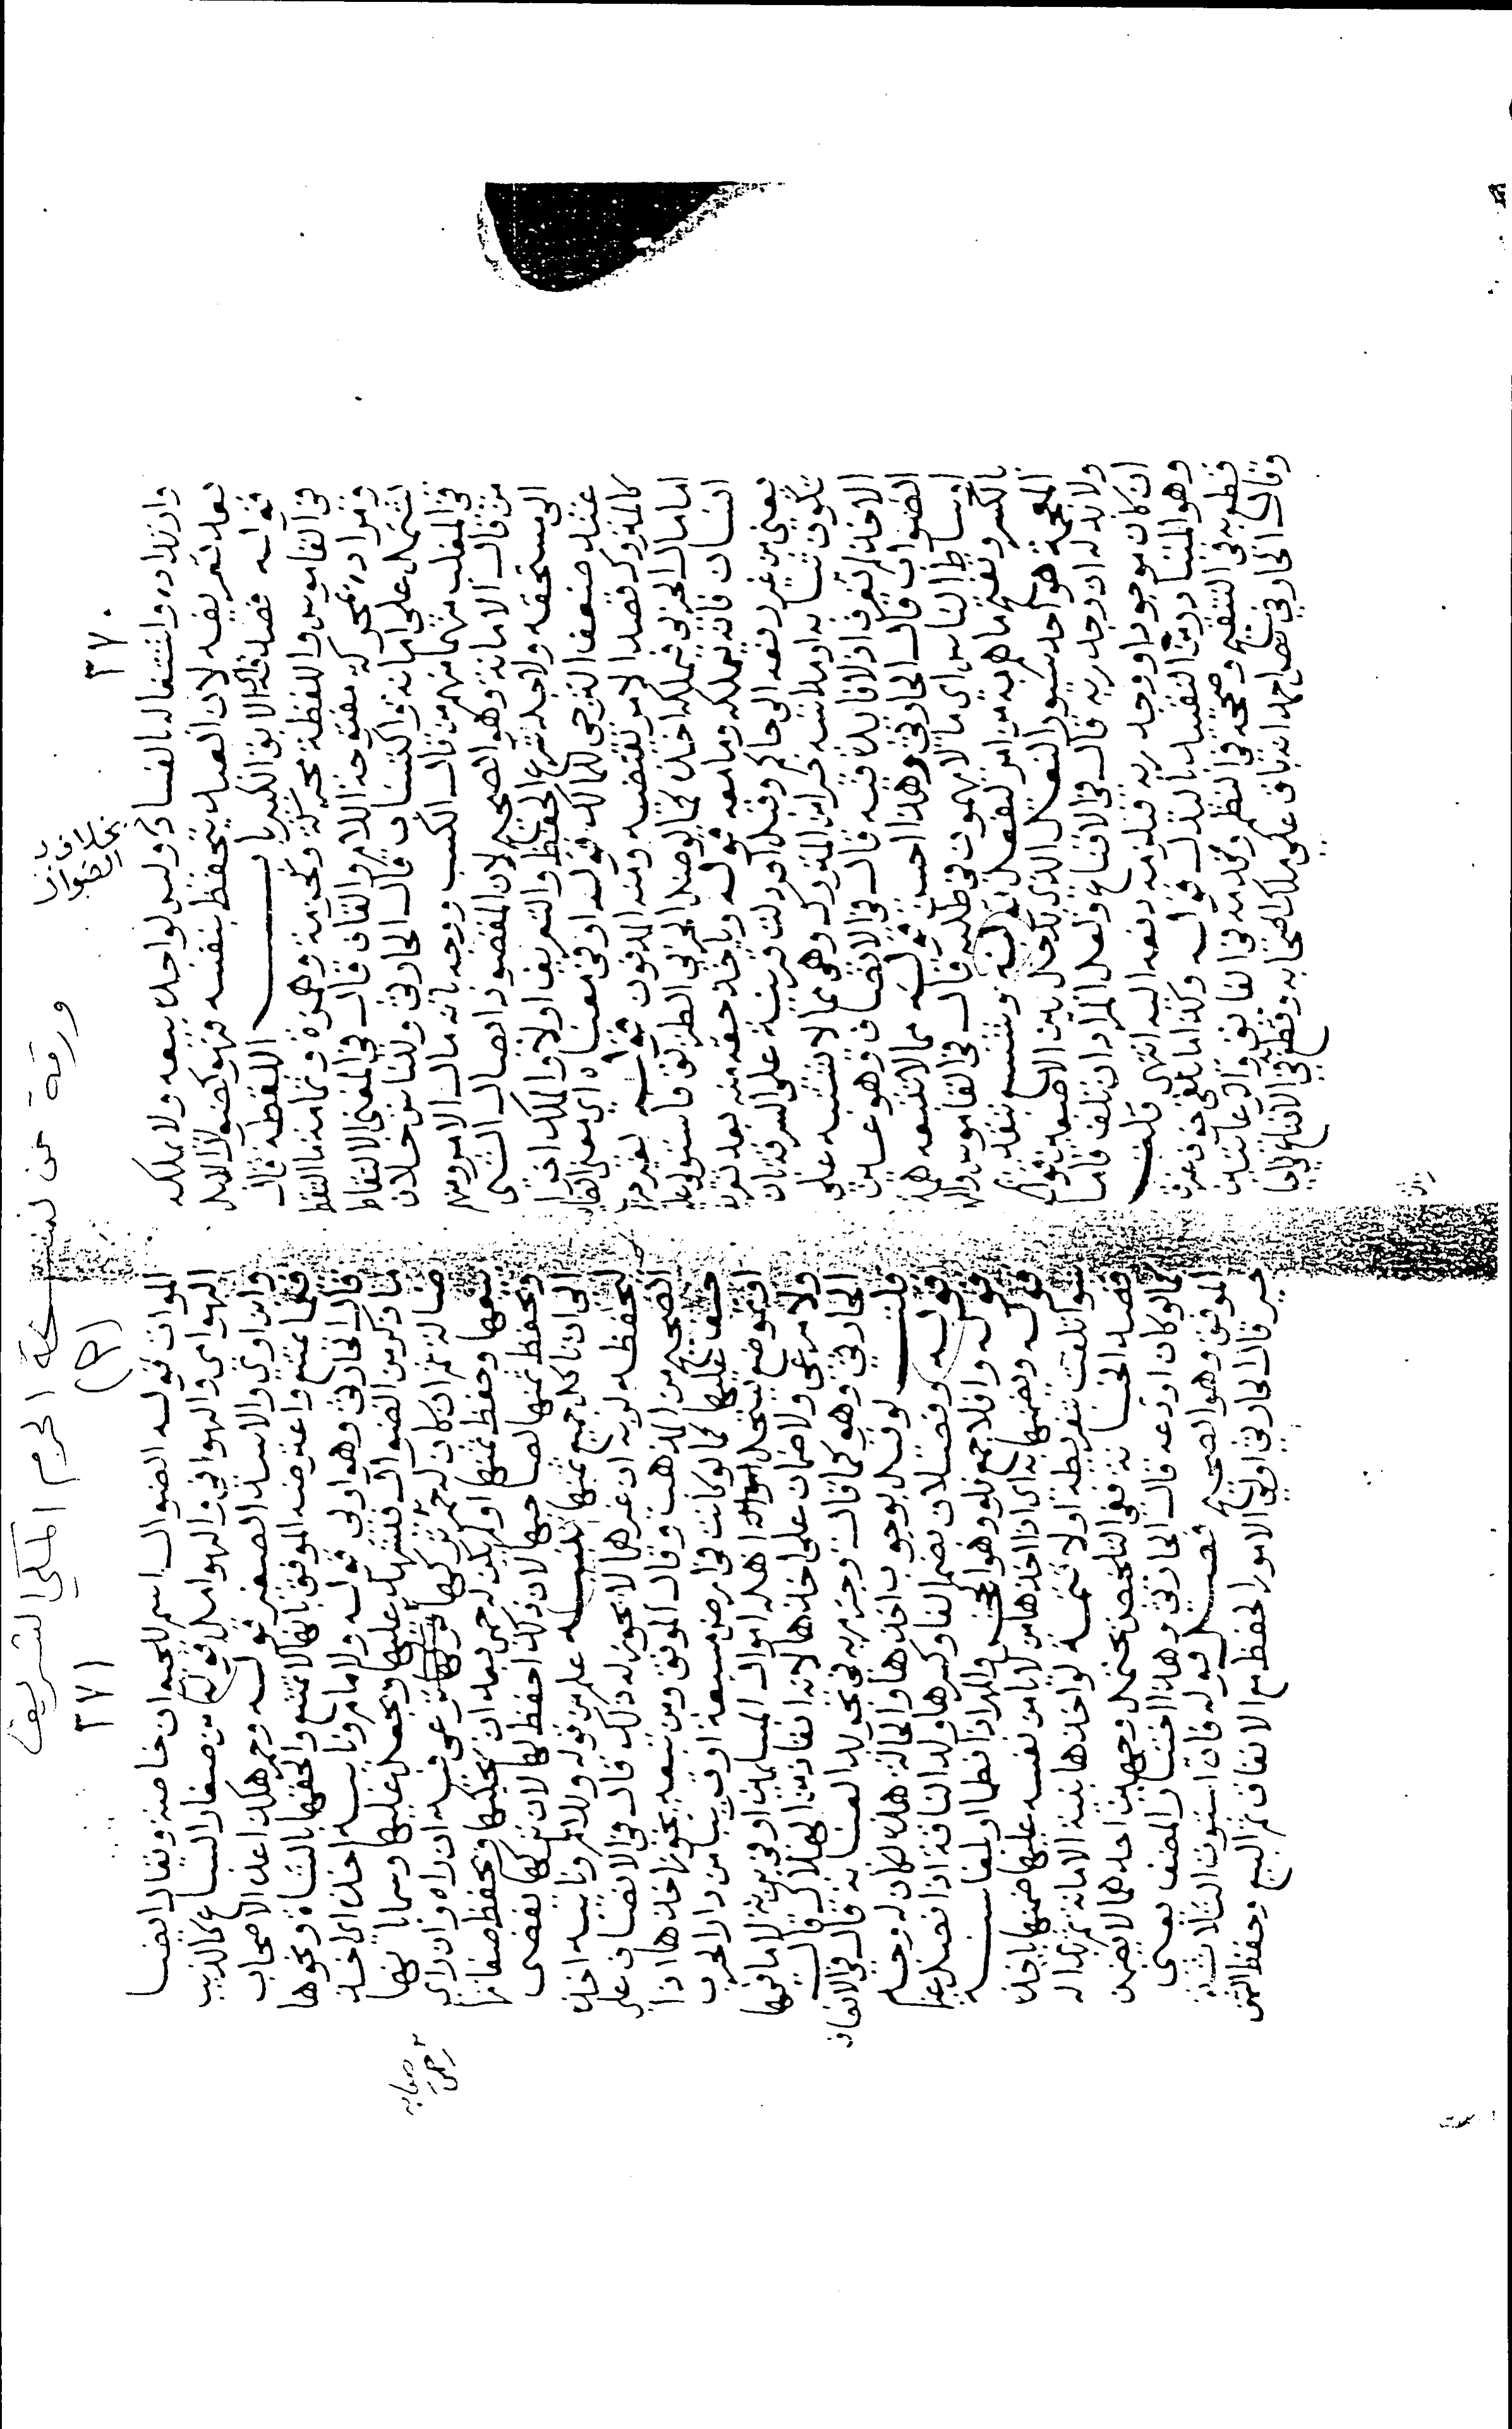 ورقة من نسخة الحرم المكي الشريف
(م)
٣٧٠
وارتداده واشتغاله بالفساد وليس لواحده بيعه ولا يملكه
بعد تعريفه لان العبد يتحفظ بنفسه فهو كضوال الابل
قوله فصدقه الابق الكبير باب اللقطة قال
في القاموس واللقطة محركة وكحزمة وهمزة وثمامة ما التقط
اشتمل على امانة واكتساب قال الحارثي وللناس خلاف
في المغلب منهما منهم من قال الكسب ووجه بانه مال الامر ومنهم
من قال الامانة وهو الصحيح لان المقصود ايصال الشي
الى مستحقه ولاجله شرع الحفظ والتعريف اولا والملك اخرا
عند ضعف الترجي للمالك قوله او في معناه اي معنى الضائع
كالمتروك قصدا لامر يقتضيه ومنه المدفون قوله لغير حربي
اما مال الحربي فيملكه اخذه كما لو ضل الحربي الطريق فاستولى عليه
انسان فانه يملكه وما معه قوله وياخذ حقه منه بعد تعريفه
يعني من غير رفعه الى حاكم وقيل
تكون ثيابه او مداسه خيرا من المتروك وهي مما لا تشتبه على
الاخذ لم تعرف اذ لا فايدة فيه قال في الانصاف وهو عين
الصواب قال الحارثي وهذا احسن قوله مما لا تتبعه همة
اوساط الناس اي ما لا يهمون في طلبه قال في القاموس والهمة
بالكسر ويفتح ما هم به من امر ليفعل قوله وشسع بتقديم
المعجمة هو احد سيور النعل الذي يدخل بين الاصبعين قوله
ولا بدله ان وجد ربه قال في الاقناع ولعل المراد ان تلف فاما
ان كان موجودا ووجد ربه فيلزمه دفعه اليه انتهى قلت
وهو المتبادر من التقييد بالبدل قوله وكذا ما القي خوف غرق
قطع به في التنقيح وصححه في النظم وقدمه في الفايق والرعايتين
وقال الحارثي نص احمد انه باق على ملك اصحابه وقطع في الاقناع
٣٧١
الموات قوله الضوال اسم للحيوان خاصة ويقال لها
الهوامي والهوافي والهوامل قوله من صغار السباع كالذيب
وابن اوي والاسد الصغير قوله وحمر هكذا عند الاصحاب
فيما يمتنع واعترضه الموفق بانها لا تمتنع والحقها بالشاة ونحوها
قال الحارثي وهو اولى قوله ولامام ونايبه اخذه اي اخذ
ما ذكر من الضوال فيشهد عليها ويجعل عليها وسما بانها
ضالة ثم ان كان له حمى تركها ترعى فيه ان راه وان راى
بيعها وحفظ ثمنها او لم يكن له حمى بعد ان يحليها ويحفظ صفاتها
ويحفظ ثمنها لصاحبها لان ذلك احفظ لها لان تركها يفضي
الى ان تاكل جميع ثمنها تنبيه علم من قوله ولامام ونايبه اخذه
ليحفظه لربه ان غيرهما لا يجوز له ذلك قال في الانصاف على
الصحيح من المذهب وقال الموفق ومن تبعه يجوز اخذها اذا
خيف عليها كما لو كانت في ارض مسبعة او قريبا من دار الحرب
او بموضع يستحل اهله اموال المسلمين او في برية لا ما فيها
ولا مرعى ولا ضمان على اخذها لانه انقاذ من الهلاك قال
الحارثي وهو كما قال وجزم به في تجريد العناية قال في الانصاف
قلت لو قيل بوجوب اخذها والحالة هذه لكان له وجه
قوله وفصلان بضم الفا وكسرها ولد الناقة اذا فصل عنها
قوله وافلا جمع فلو وهو الجحش والمهر اذا فطما او بلغا سنة
قوله ويضمنها به اي اذا اخذها من لا يامن نفسه عليها ضمنها باخذه
سوا تلفت بتفريطه او لا تتمة لو اخذها بنية الامانة ثم بدا له
قصد الخيانة ففي التلخيص يحتمل وجهين احدهما لا يضمن
كما لو كان اودعه قال الحارثي وهذا اختيار المصنف يعني
الموفق وهو الصحيح فصل قوله فان استوت الثلاثة
خير قال الحارثي اولى الامور الحفظ مع الانفاق ثم البيع وحفظ الثمن